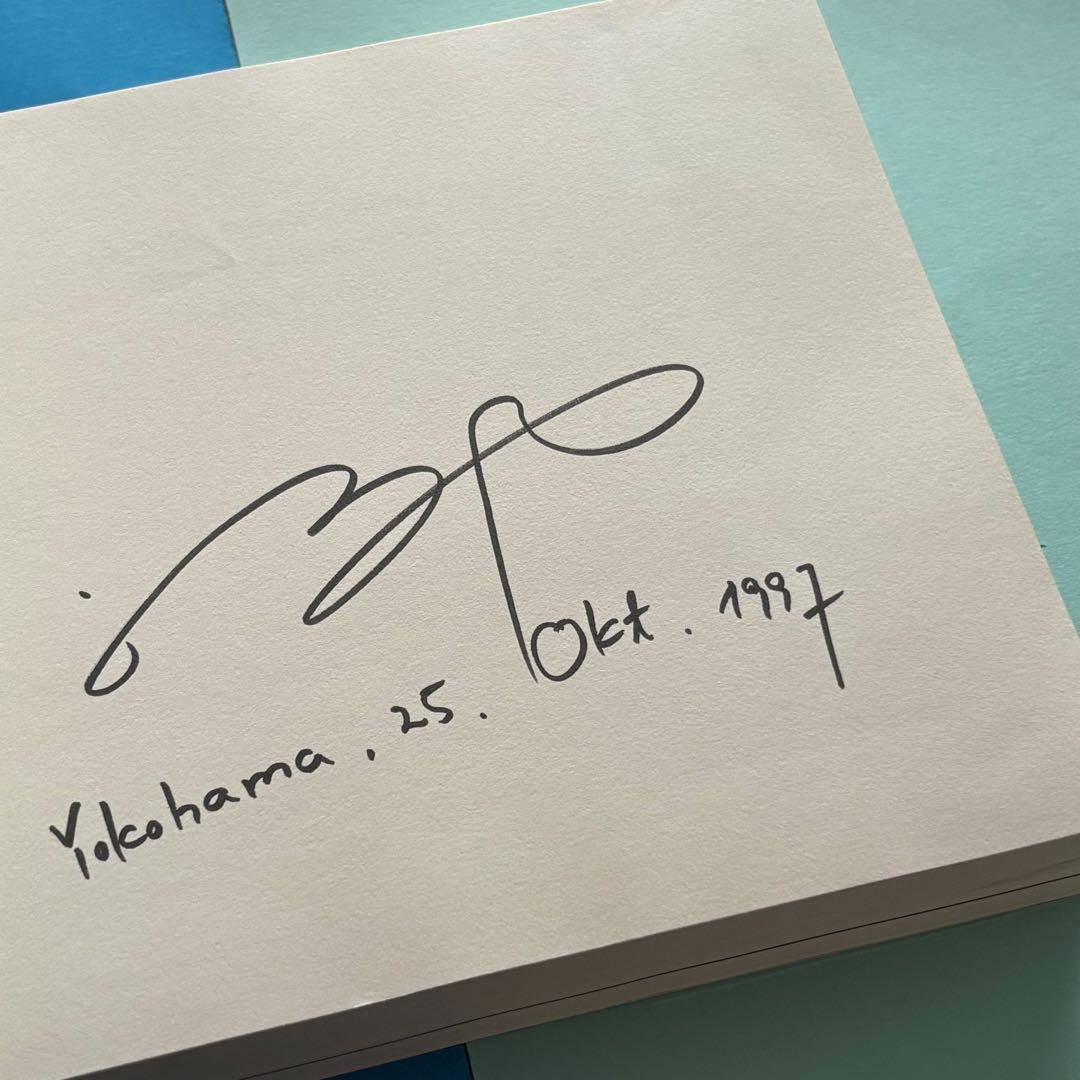 Yokohama . 25. Okt . 1997